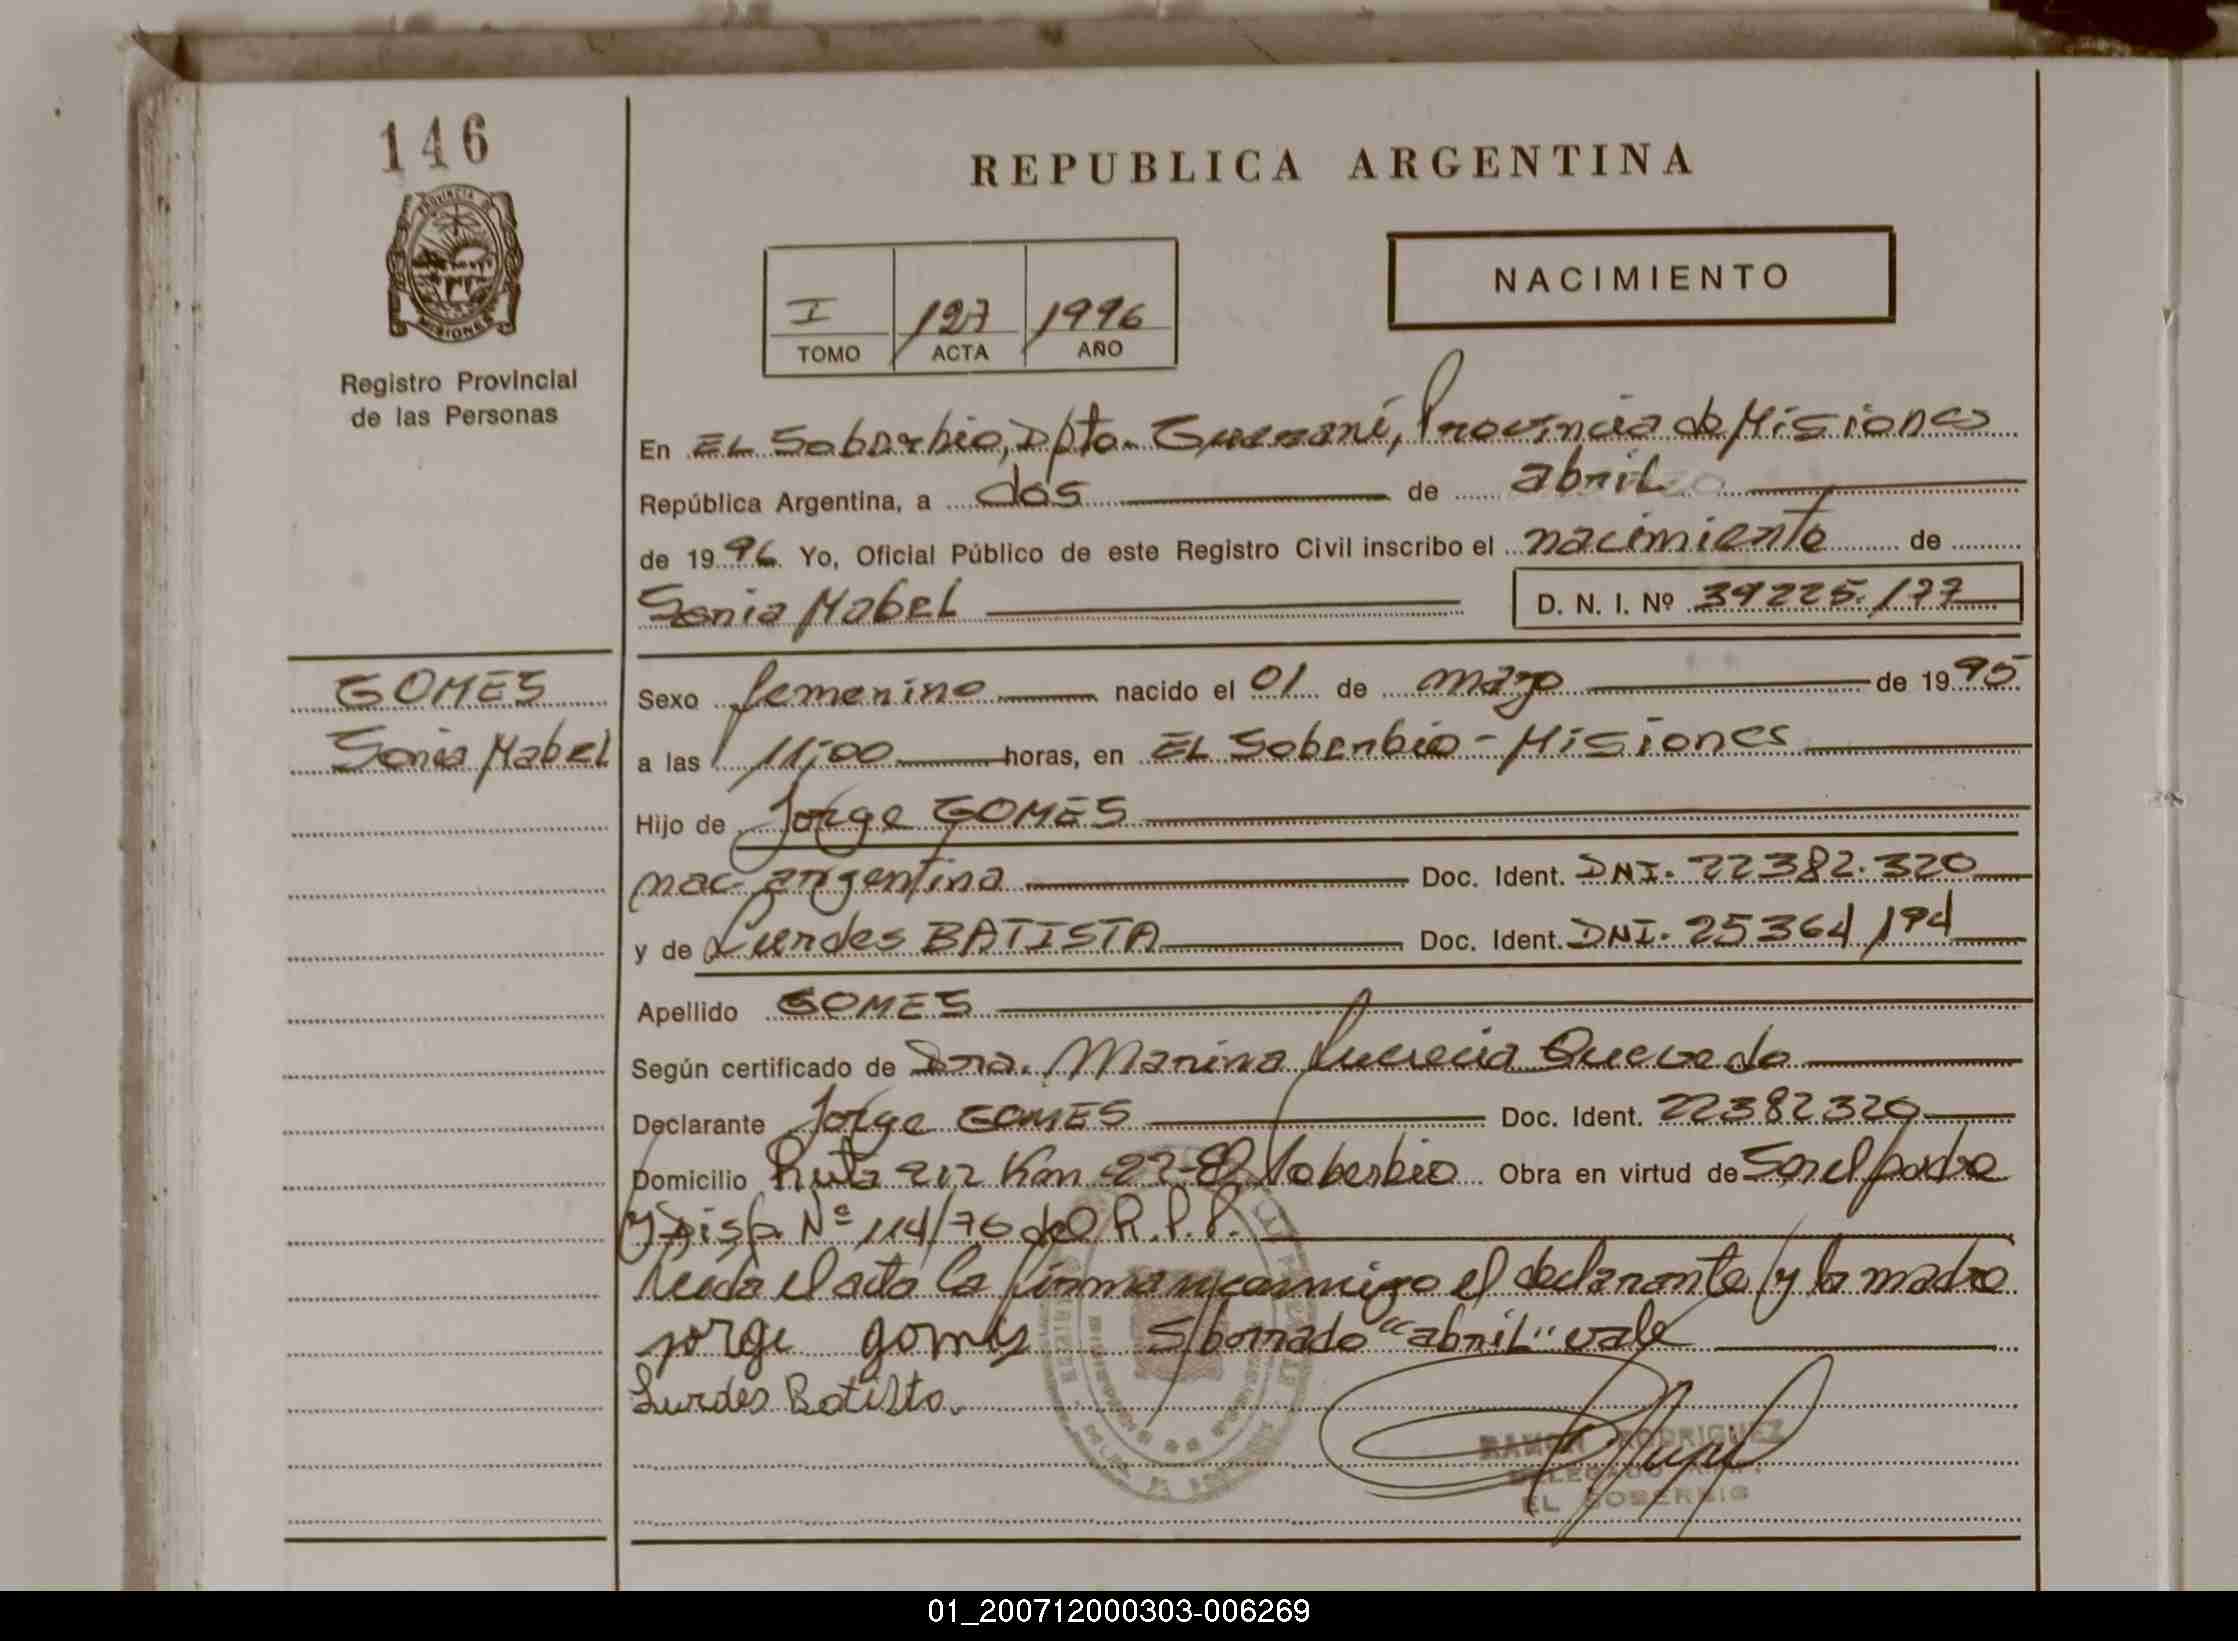 146
PROVINCIA DE
MISIONES
Registro Provincial
de las Personas
REPUBLICA ARGENTINA
I 127 1996
TOMO ACTA AÑO
NACIMIENTO
En EL Soberbio, Dpto. Guaraní, Provincia de Misiones
República Argentina, a dos de abril
de 1996. Yo, Oficial Público de este Registro Civil inscribo el nacimiento de
Sonia Mabel D. N. I. Nº 39225.177
GOMES
Sonia Mabel
Sexo femenino nacido el 01 de mayo de 1995
a las 11,00 horas, en EL Soberbio - Misiones
Hijo de Jorge GOMES
nac. argentina Doc. Ident. DNI. 22382.320
y de Lurdes BATISTA Doc. Ident. DNI. 25364194
Apellido GOMES
Según certificado de Dra. Marina Lucrecia Quevedo
Declarante Jorge GOMES Doc. Ident. 22382320
Domicilio Ruta 212 Km 22 - El Soberbio Obra en virtud de Ser el padre
y Disp. Nº 114/76 del R.P.P.
Leída el acta la firman conmigo el declarante y la madre
jorge gomes S/borrado "abril" vale
Lurdes Batista.
RAMON RODRIGUEZ
DELEGADO
EL SOBERBIO
01_200712000303-006269